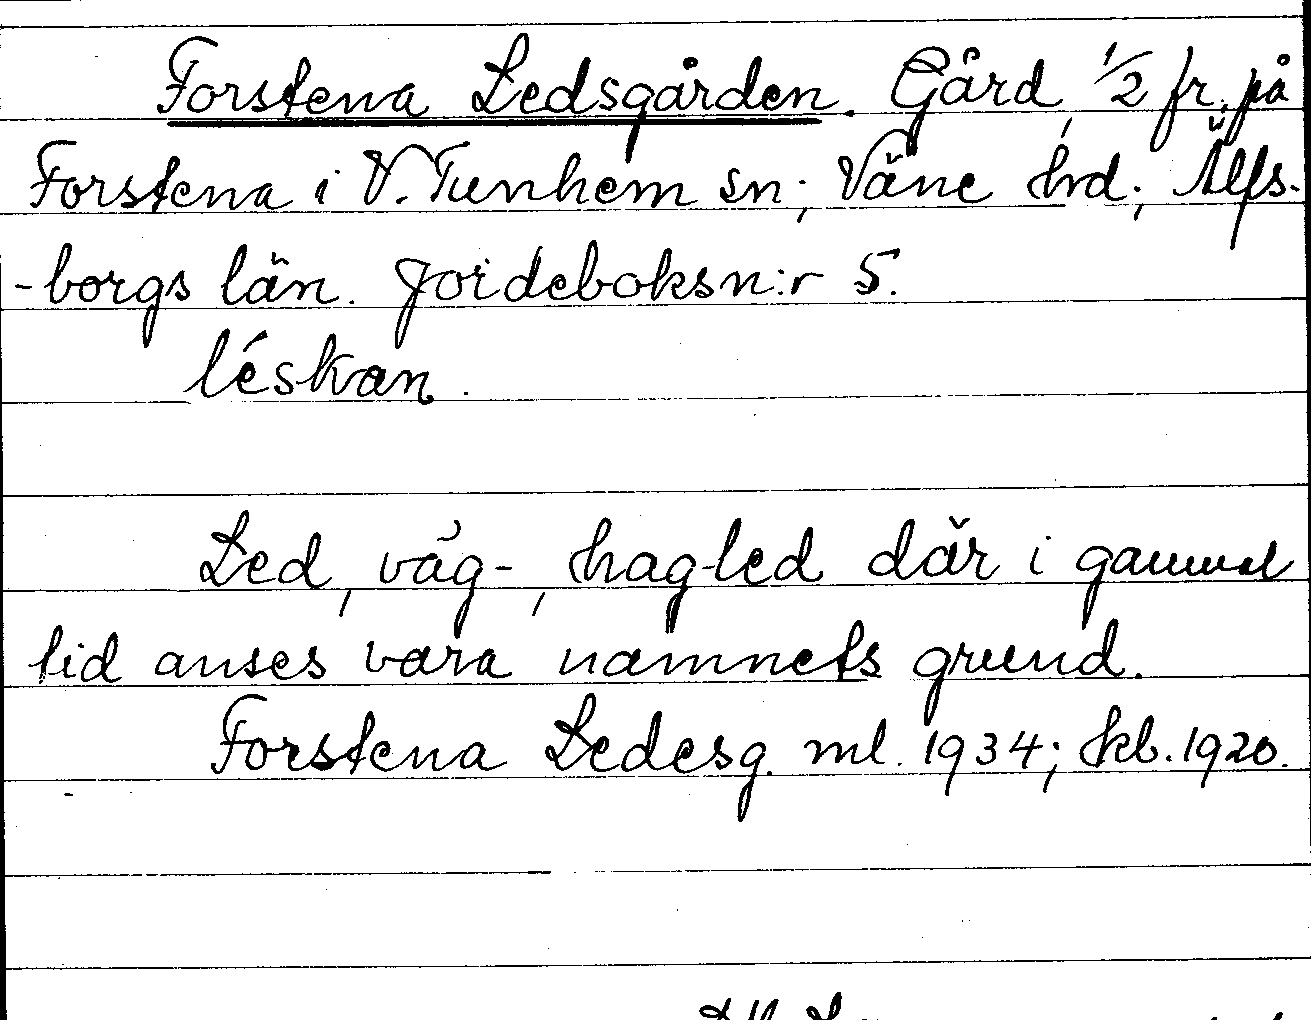 Forstena Ledsgården. Gård, 1/2 fr. på
Forstena i V. Tunhem sn; Väne hd; Älfs-
-borgs län. Jordeboksn:r 5.
léskan.
Led, väg-, hag-led där i gammal
tid anses vara namnets grund.
Forstena Ledesg. ml. 1934; kb. 1920.